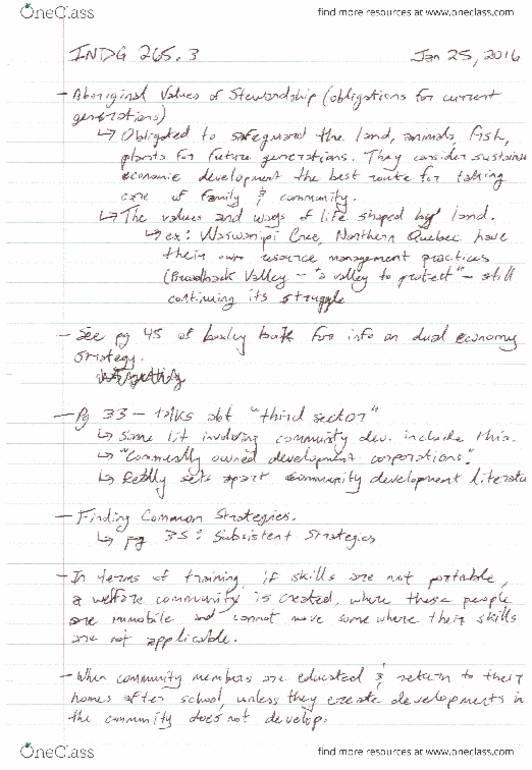 OneClass
find more resources at www.oneclass.com
INDG 265.3 Jan 25, 2016
- Aboriginal Values of Stewardship (obligations for current
generations)
↳ Obligated to safeguard the land, animals, fish,
plants for future generations. They consider sustaina
economic development the best route for taking
care of family & community.
↳ The values and ways of life shaped by land.
↳ ex: Waswanipi Cree, Northern Quebec have
their own resource management practices
(Broadback Valley - "a valley to protect" - still
continuing its struggle
- See pg 45 of book for info on dual economy
strategy.
- Pg 33 - talks abt "third sector"
↳ Some lit involving community dev. include this.
↳ "Community owned development corporations."
↳ Really sets apart community development literatu
- Finding Common Strategies.
↳ pg 35: Subsistent Strategies
- In terms of training, if skills are not portable,
a welfare community is created, where these people
are immobile and cannot move some where their skills
are not applicable.
- When community members are educated & return to their
homes after school, unless they create developments in
the community does not develop.
OneClass
find more resources at www.oneclass.com